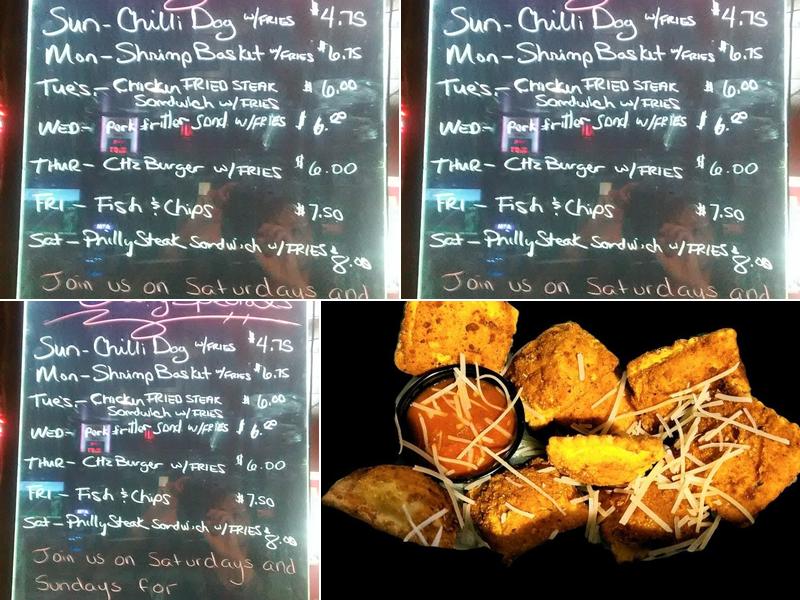 Sun - Chilli Dog w/FRIES $4.75
Mon - Shrimp Basket w/FRIES $6.75
Tues. - Chicken FRIED STEAK $6.00
Sandwich w/FRIES
WED - Pork fritter Sand w/FRIES $6.00
THUR - CHz Burger w/FRIES $6.00
FRI - Fish & Chips $7.50
Sat - Philly Steak Sandwich w/FRIES $8.00
Join us on Saturdays and
Sun - Chilli Dog w/FRIES $4.75
Mon - Shrimp Basket w/FRIES $6.75
Tues. - Chicken FRIED STEAK $6.00
Sandwich w/FRIES
WED - Pork fritter Sand w/FRIES $6.00
THUR - CHz Burger w/FRIES $6.00
FRI - Fish & Chips $7.50
Sat - Philly Steak Sandwich w/FRIES $8.00
Join us on Saturdays and
Specials
Sun - Chilli Dog w/FRIES $4.75
Mon - Shrimp Basket w/FRIES $6.75
Tues. - Chicken FRIED STEAK $6.00
Sandwich w/FRIES
WED - Pork fritter Sand w/FRIES $6.00
THUR - CHz Burger w/FRIES $6.00
FRI - Fish & Chips $7.50
Sat - Philly Steak Sandwich w/FRIES $8.00
Join us on Saturdays and
Sundays for